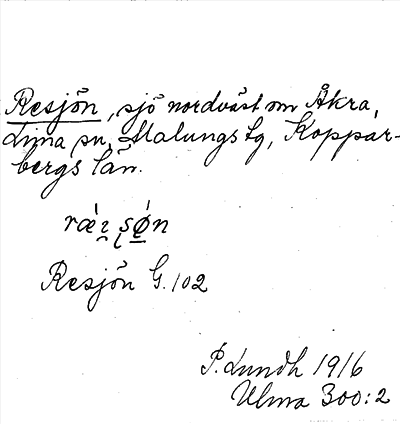 Resjön, sjö nordväst om Åkra,
Lima sn, Malungs tg, Koppar-
bergs län.
Resjön G.102
P. Lundh 1916
Ulma 300:2